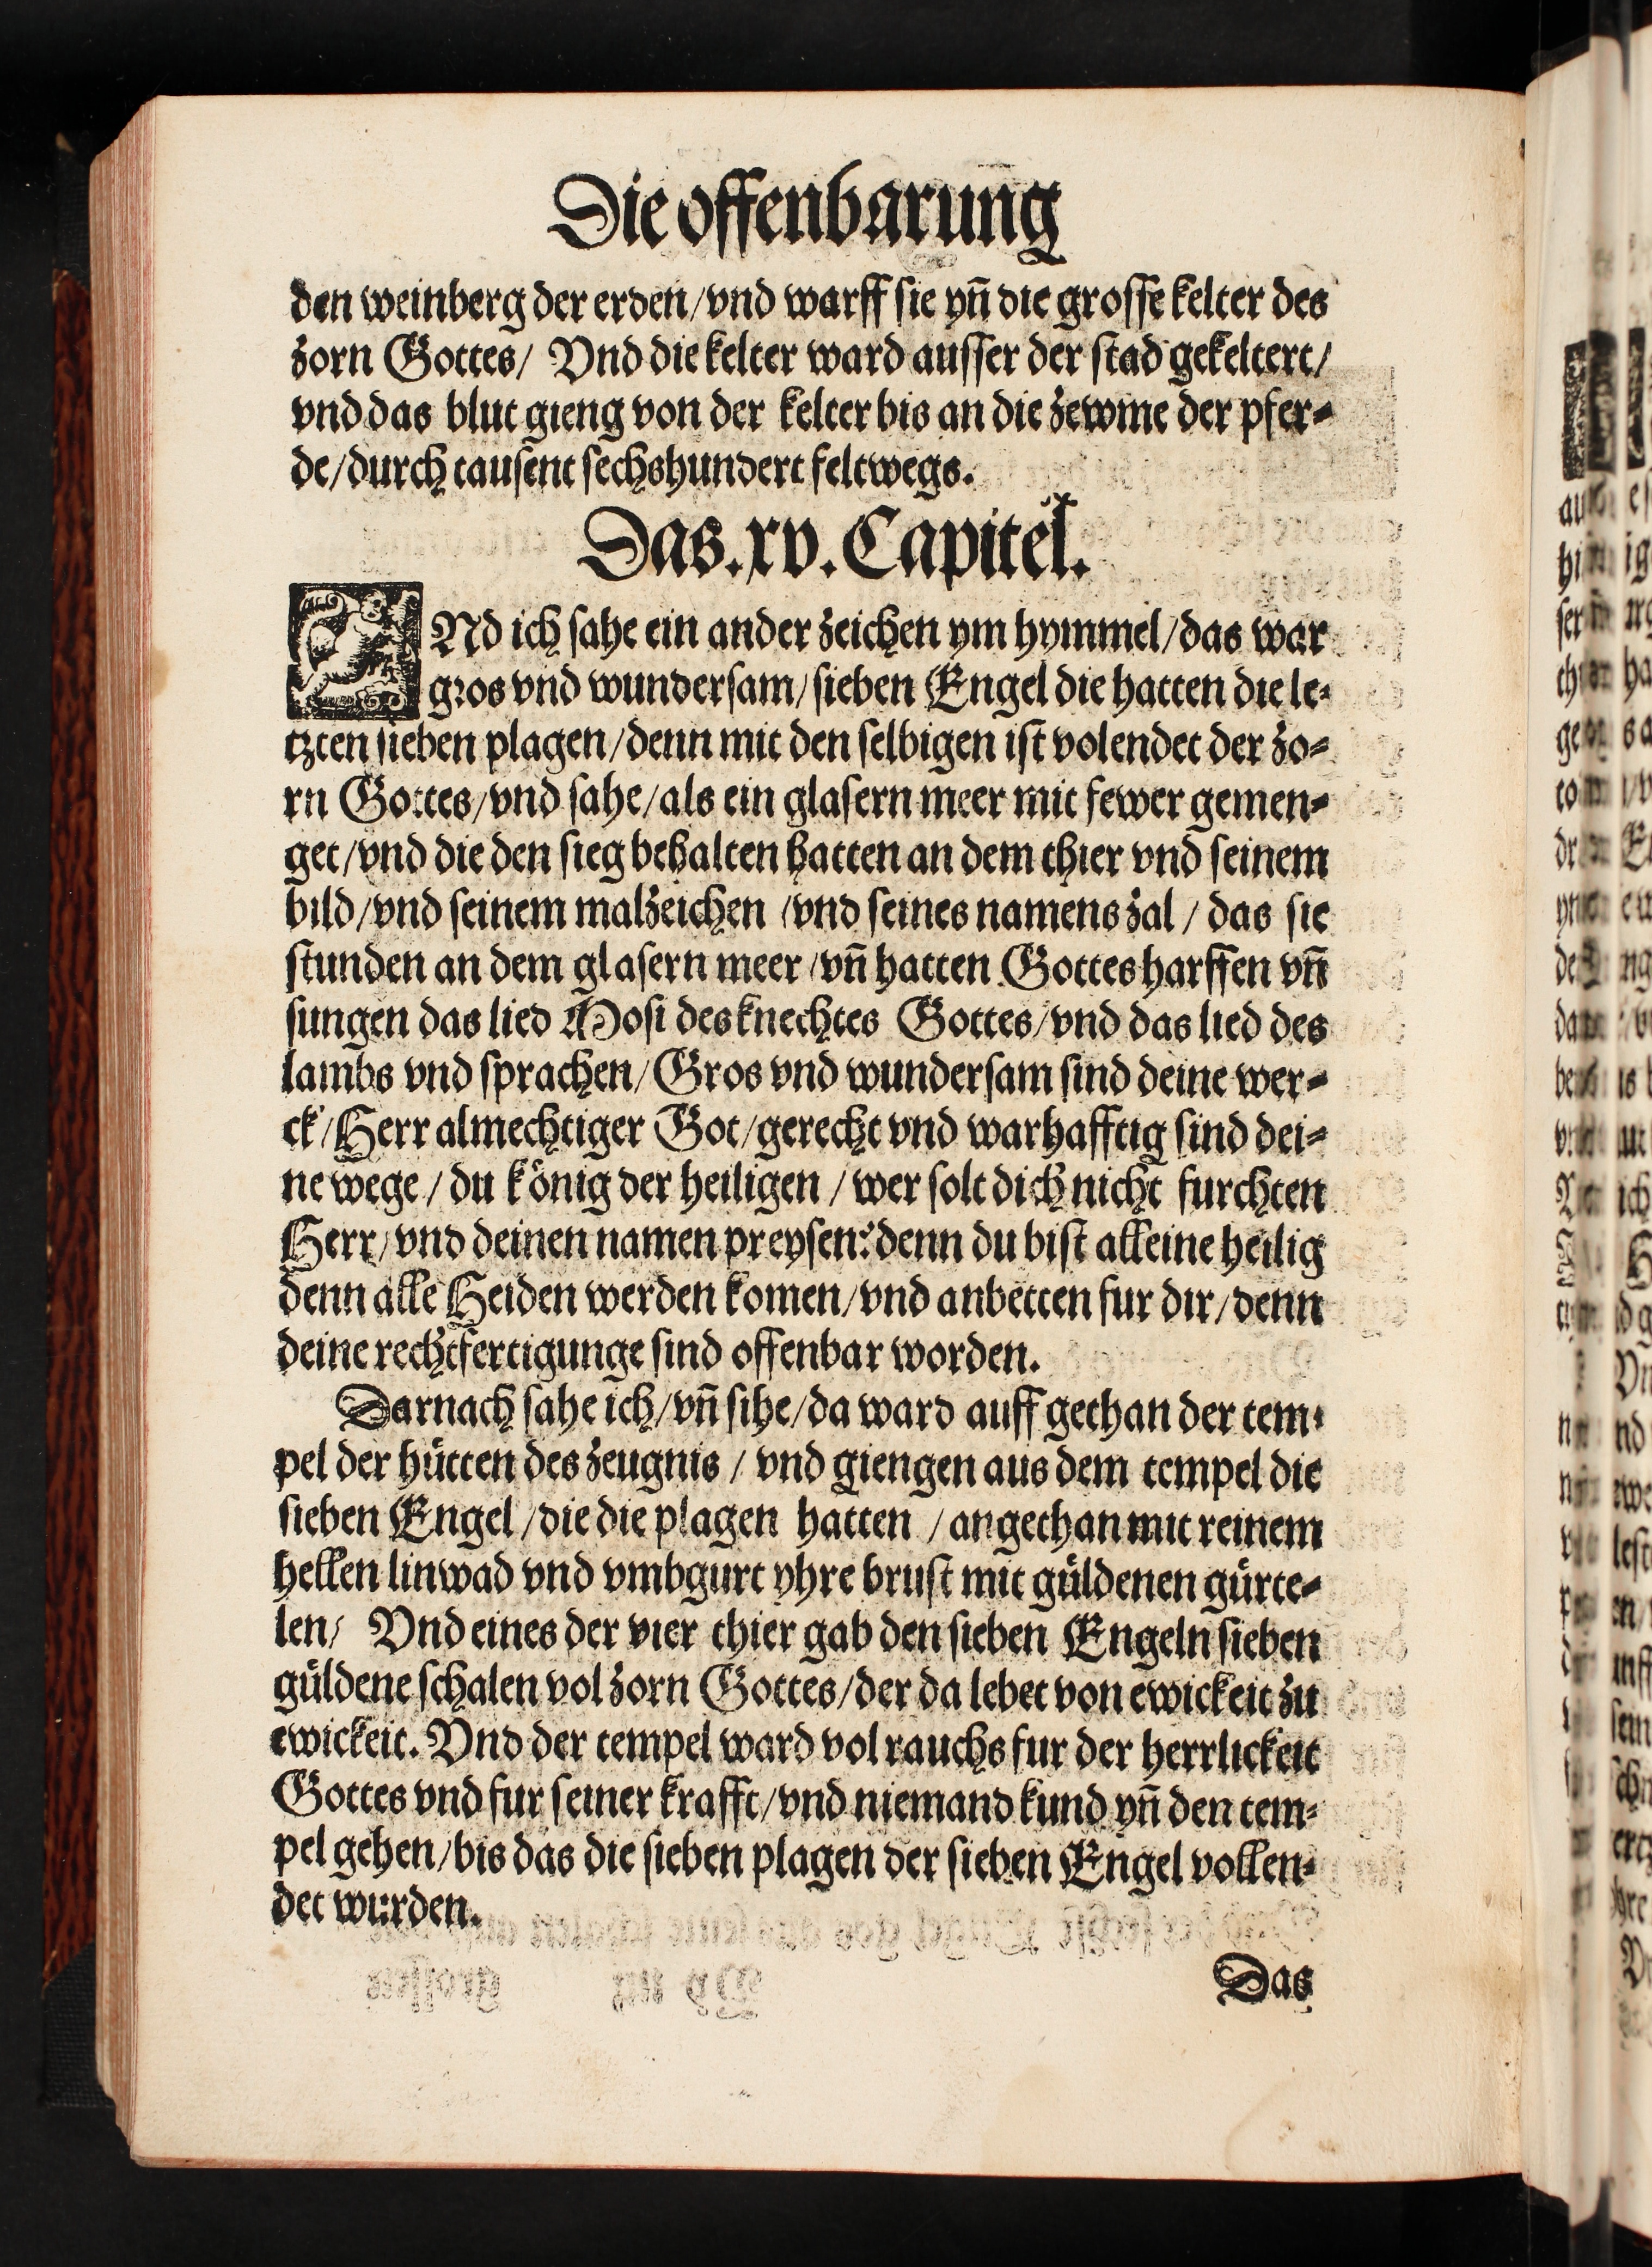 Die offenbarung
den weinberg der erden/vnd warff sie yñ die grosse kelter des
zorn Gottes/ Vnd die kelter ward ausser der stad gekeltert/
vnd das blut gieng von der kelter bis an die zewme der pfer⸗
de/durch tausent sechshundert feltwegs.
Das.xv.Capitel.
VNd ich sahe ein ander zeichen ym hymmel/das war
gros vnd wundersam/sieben Engel die hatten die le⸗
tzten sieben plagen/denn mit den selbigen ist volendet der zo⸗
rn Gottes/vnd sahe/als ein glasern meer mit fewer gemen⸗
get/vnd die den sieg behalten hatten an dem thier vnd seinem
bild/vnd seinem malzeichen /vnd seines namens zal / das sie
stunden an dem glasern meer /vñ hatten Gottes harffen vñ
sungen das lied Mosi des knechtes Gottes/vnd das lied des
lambs vnd sprachen/Gros vnd wundersam sind deine wer⸗
ck/Herr almechtiger Got/gerecht vnd warhafftig sind dei⸗
ne wege / du könig der heiligen / wer solt dich nicht furchten
Herr/vnd deinen namen preysen? denn du bist alleine heilig
denn alle Heiden werden komen/vnd anbetten fur dir/denn
deine rechtfertigunge sind offenbar worden.
Darnach sahe ich/vñ sihe/da ward auff gethan der tem⸗
pel der hütten des zeugnis / vnd giengen aus dem tempel die
sieben Engel /die die plagen hatten / angethan mit reinem
hellen linwad vnd vmbgurt yhre brust mit güldenen gürte⸗
len/ Vnd eines der vier thier gab den sieben Engeln sieben
güldene schalen vol zorn Gottes/der da lebet von ewickeit zu
ewickeit. Vnd der tempel ward vol rauchs fur der herrlickeit
Gottes vnd fur seiner krafft/vnd niemand kund yñ den tem⸗
pel gehen/bis das die sieben plagen der sieben Engel vollen⸗
det wurden.
Das